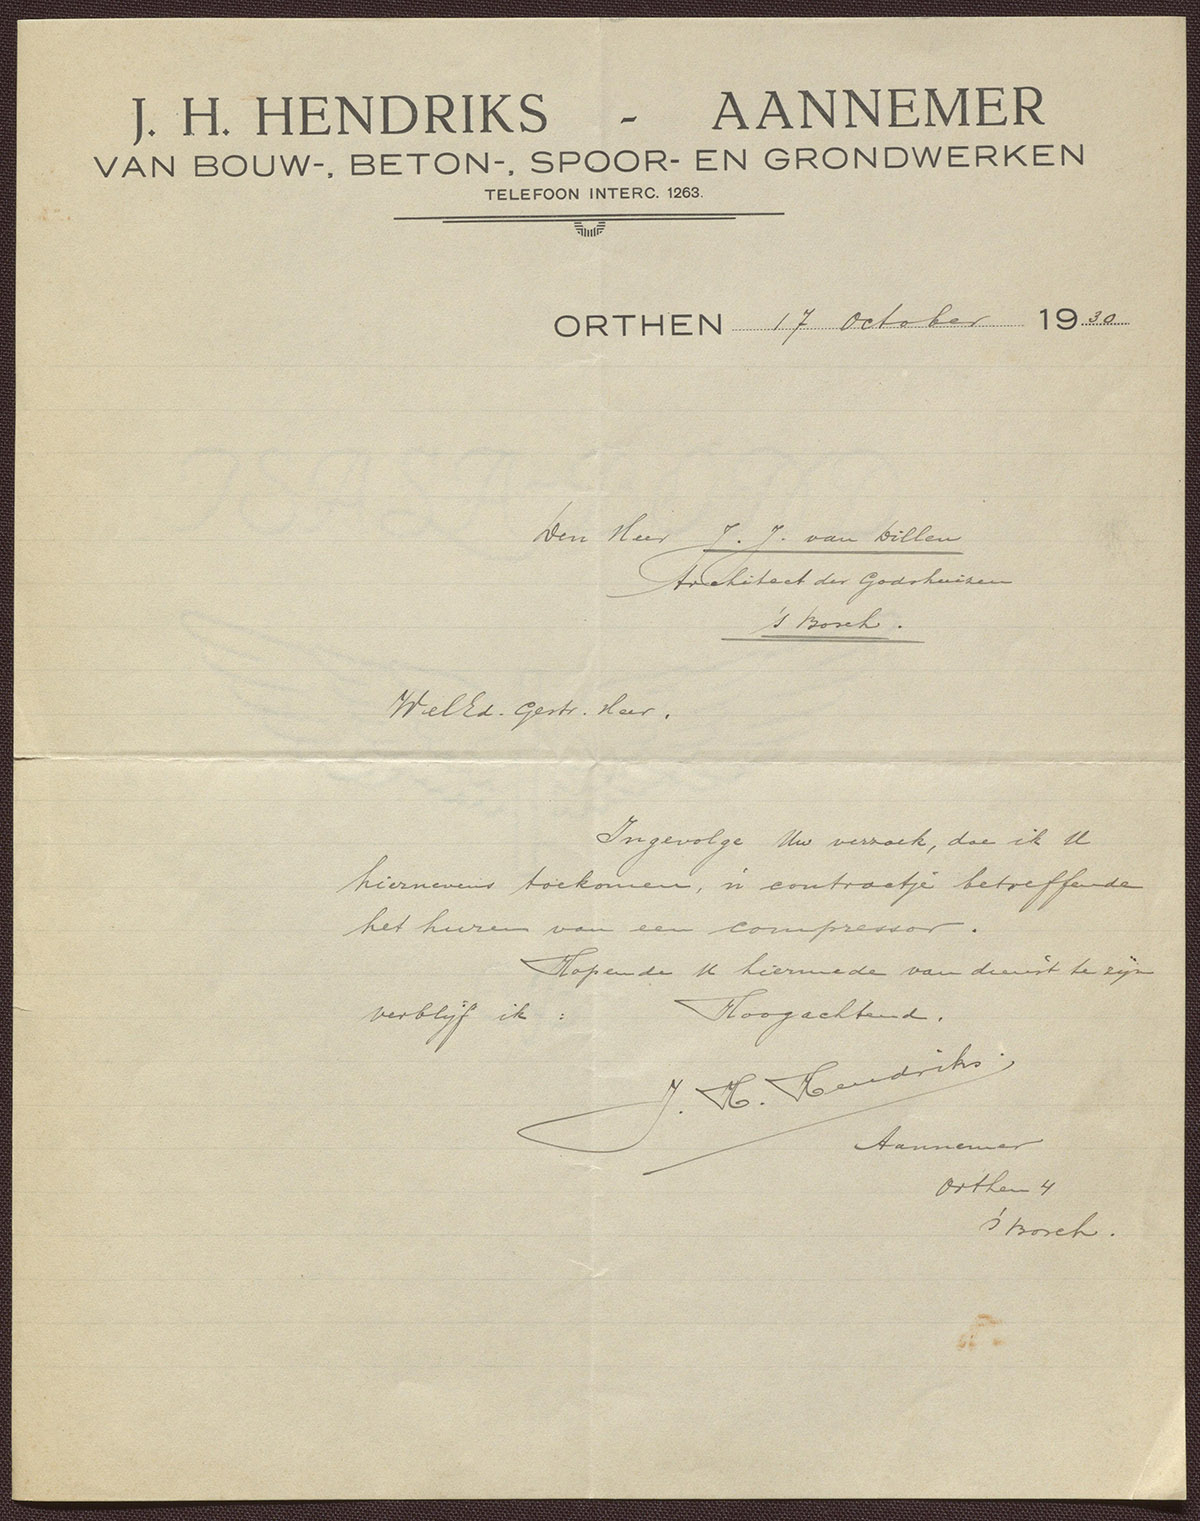 J. H. HENDRIKS - AANNEMER
VAN BOUW-, BETON-, SPOOR- EN GRONDWERKEN
TELEFOON INTERC. 1263.
ORTHEN 17 October 1930
Den Heer J. J. van Dillen
Architect der Godshuizen
's Bosch.
WelEd. Gestr. Heer.
Ingevolge Uw verzoek, doe ik U
hiernevens toekomen, 'n contractje betreffende
het huren van een compressor.
Hopende U hiermede van dienst te zijn
verblijf ik : Hoogachtend.
J. H. Hendriks.
Aannemer
Orthen 4
's Bosch.